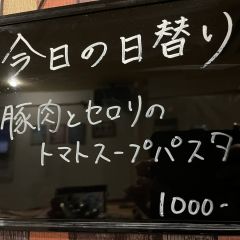 今日の日替り
豚肉とセロリの
トマトスープパスタ
1000-